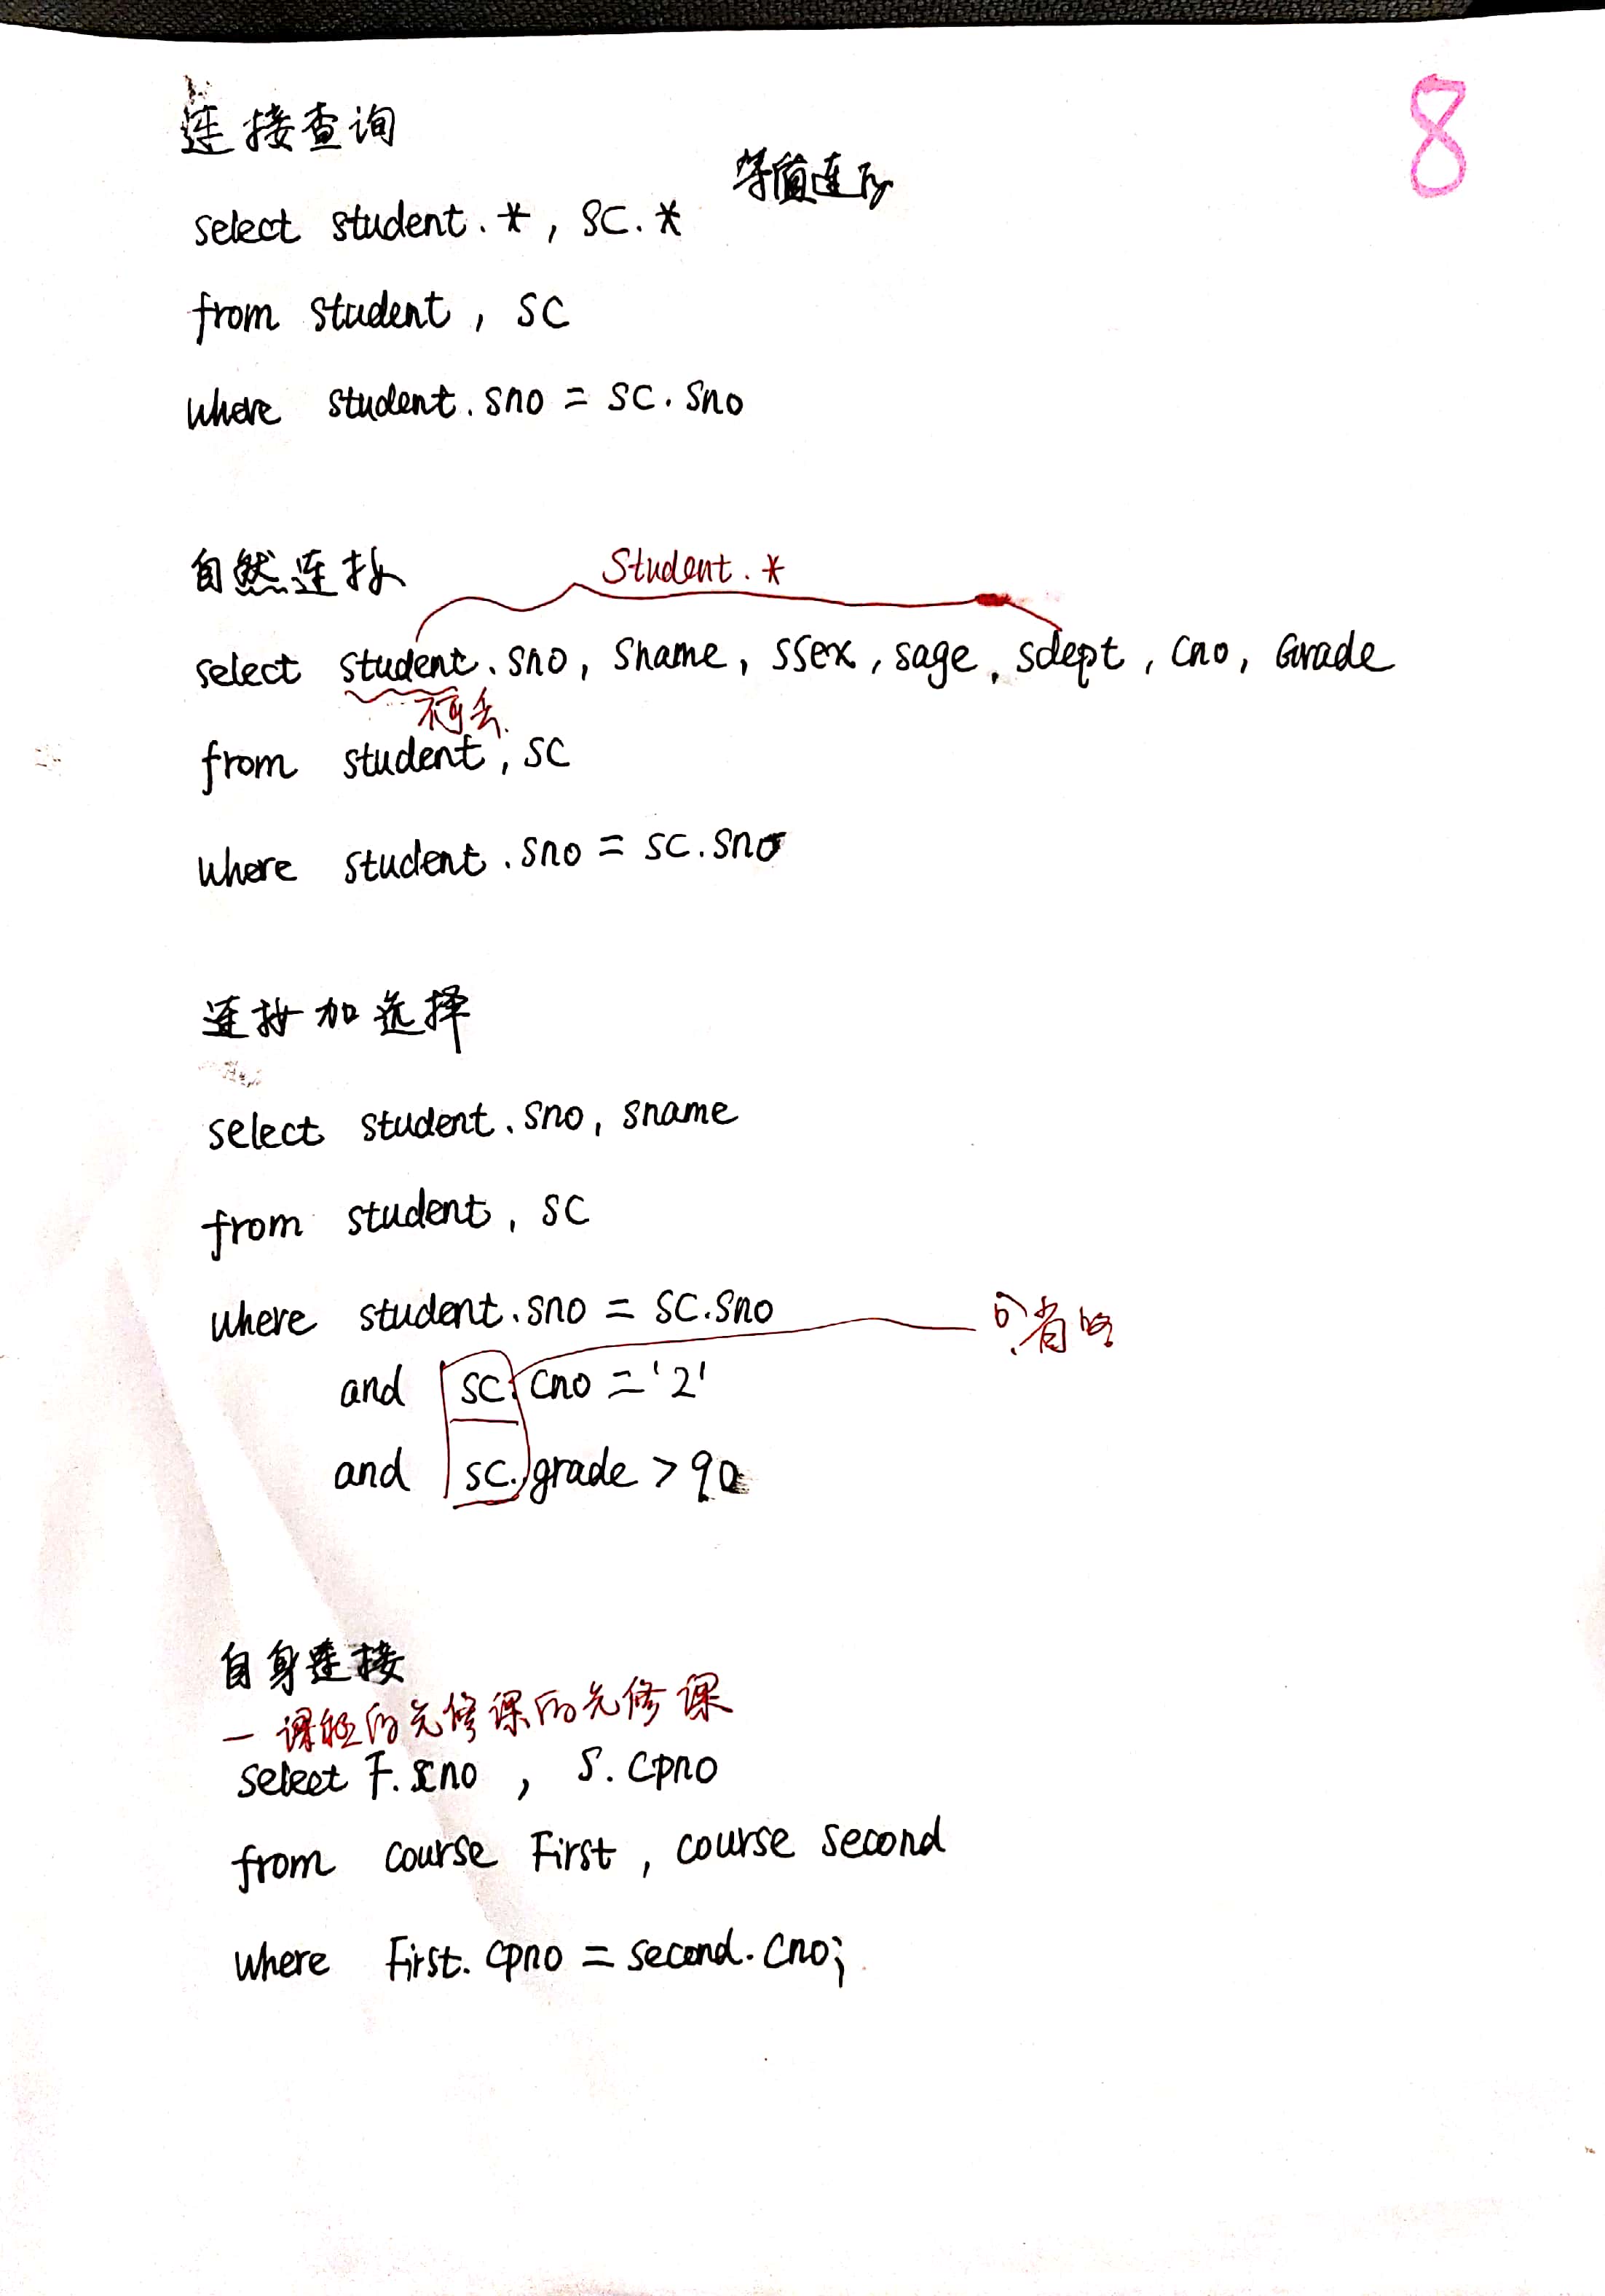 8
连接查询
等值连接
select student.*, SC.*
from student, SC
where student.sno = SC.Sno
自然连接
Student.*
select student.sno, Sname, ssex, sage, sdept, cno, Grade
不可丢
from student, SC
where student.sno = SC.Sno
连接加选择
select student.sno, sname
from student, SC
where student.sno = SC.Sno
可省略
and SC.cno = '2'
and SC.grade > 90
自身连接
一课程的先修课的先修课
select F.cno, S.cpno
from course First, course second
where First.cpno = second.cno;